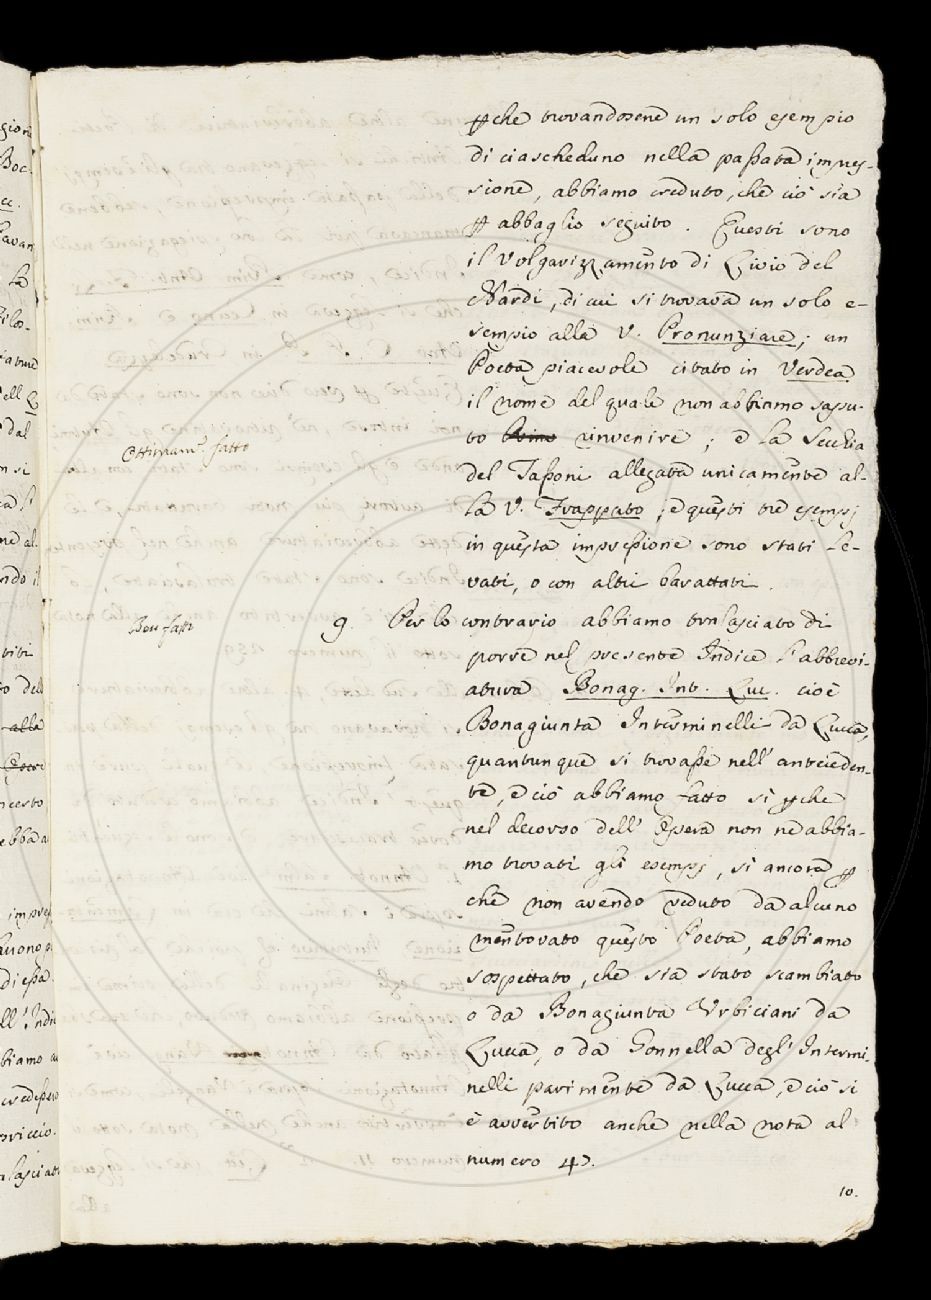 ꝑche trovandosene un solo esempio
di ciascheduno nella passata impres-
sione, abbiamo creduto, che ciò sia
ꝑ abbaglio seguito. Questi sono
il Volgarizzamento di Livio del
Nardi, di cui si trovava un solo e-
sempio alla V. Pronunziare; un
Poeta piacevole citato in Verdea
il nome del quale non abbiamo sapu-
to rinvenire; e la Secchia
Ottimam.e fatto
del Tassoni allegata unicamente al-
la V. Frappato; e questi tre esempj
in questa impressione sono stati le-
vati, o con altri barattati.
Ben fatto
9. Per lo contrario abbiamo tralasciato di
porre nel presente Indice l'abbrevi-
atura Bonag. Int. Luc. cioè
Bonagiunta Interminelli da Lucca,
quantunque si trovasse nell'anteceden-
te, e ciò abbiamo fatto sì ꝑche
nel decorso dell'Opera non ne abbia-
mo trovati gli esempj, sì ancora ꝑ
che non avendo veduto da alcuno
mentovato questo Poeta, abbiamo
sospettato, che sia stato scambiato
o da Bonagiunta Urbiciani da
Lucca, o da Gonnella degl'Intermi-
nelli parimente da Lucca, e ciò si
è avvertito anche nella nota al
numero 47.
10.